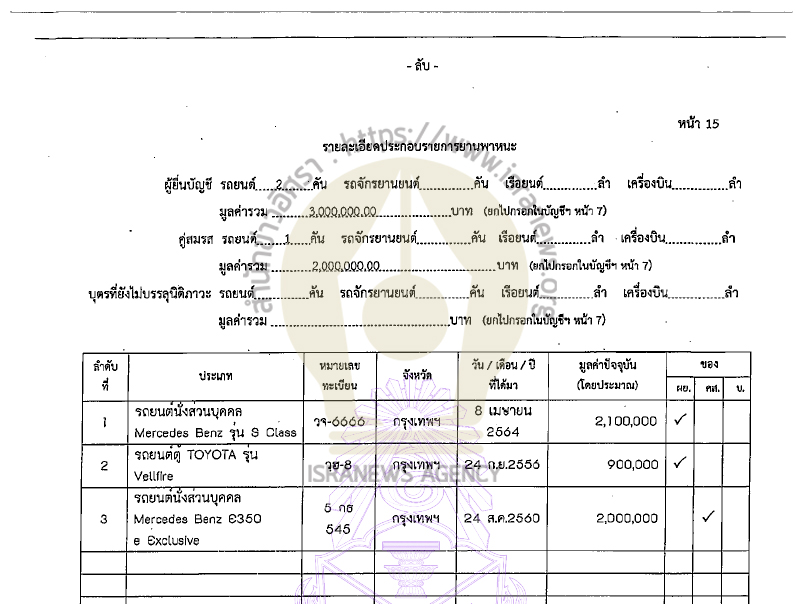 - ลับ -
หน้า 15
รายละเอียดประกอบรายการยานพาหนะ
ผู้ยื่นบัญชี รถยนต์....2....คัน รถจักรยานยนต์............คัน เรือยนต์............ลำ เครื่องบิน............ลำ
มูลค่ารวม ........3,000,000.00................บาท (ยกไปกรอกในบัญชีฯ หน้า 7)
คู่สมรส รถยนต์.......1....คัน รถจักรยานยนต์............คัน เรือยนต์............ลำ เครื่องบิน............ลำ
มูลค่ารวม ........2,000,000.00................บาท (ยกไปกรอกในบัญชีฯ หน้า 7)
บุตรที่ยังไม่บรรลุนิติภาวะ รถยนต์............คัน รถจักรยานยนต์............คัน เรือยนต์............ลำ เครื่องบิน............ลำ
มูลค่ารวม ................................บาท (ยกไปกรอกในบัญชีฯ หน้า 7)
ลำดับที่ ประเภท หมายเลขทะเบียน จังหวัด วัน / เดือน / ปี ที่ได้มา มูลค่าปัจจุบัน (โดยประมาณ) ของ
ผย. คส. บ.
1 รถยนต์นั่งส่วนบุคคล Mercedes Benz รุ่น S Class วจ-6666 กรุงเทพฯ 8 เมษายน 2564 2,100,000 ✓
2 รถยนต์ตู้ TOYOTA รุ่น Vellfire วฮ-8 กรุงเทพฯ 24 ก.ย.2556 900,000 ✓
3 รถยนต์นั่งส่วนบุคคล Mercedes Benz E350 e Exclusive 5 กธ 545 กรุงเทพฯ 24 ส.ค.2560 2,000,000 ✓
สำนักข่าวอิศรา : https://www.isranews.org
ISRANEWS AGENCY